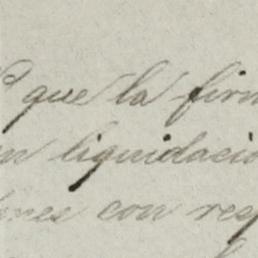 que la firm
en liquidació
nes con resp